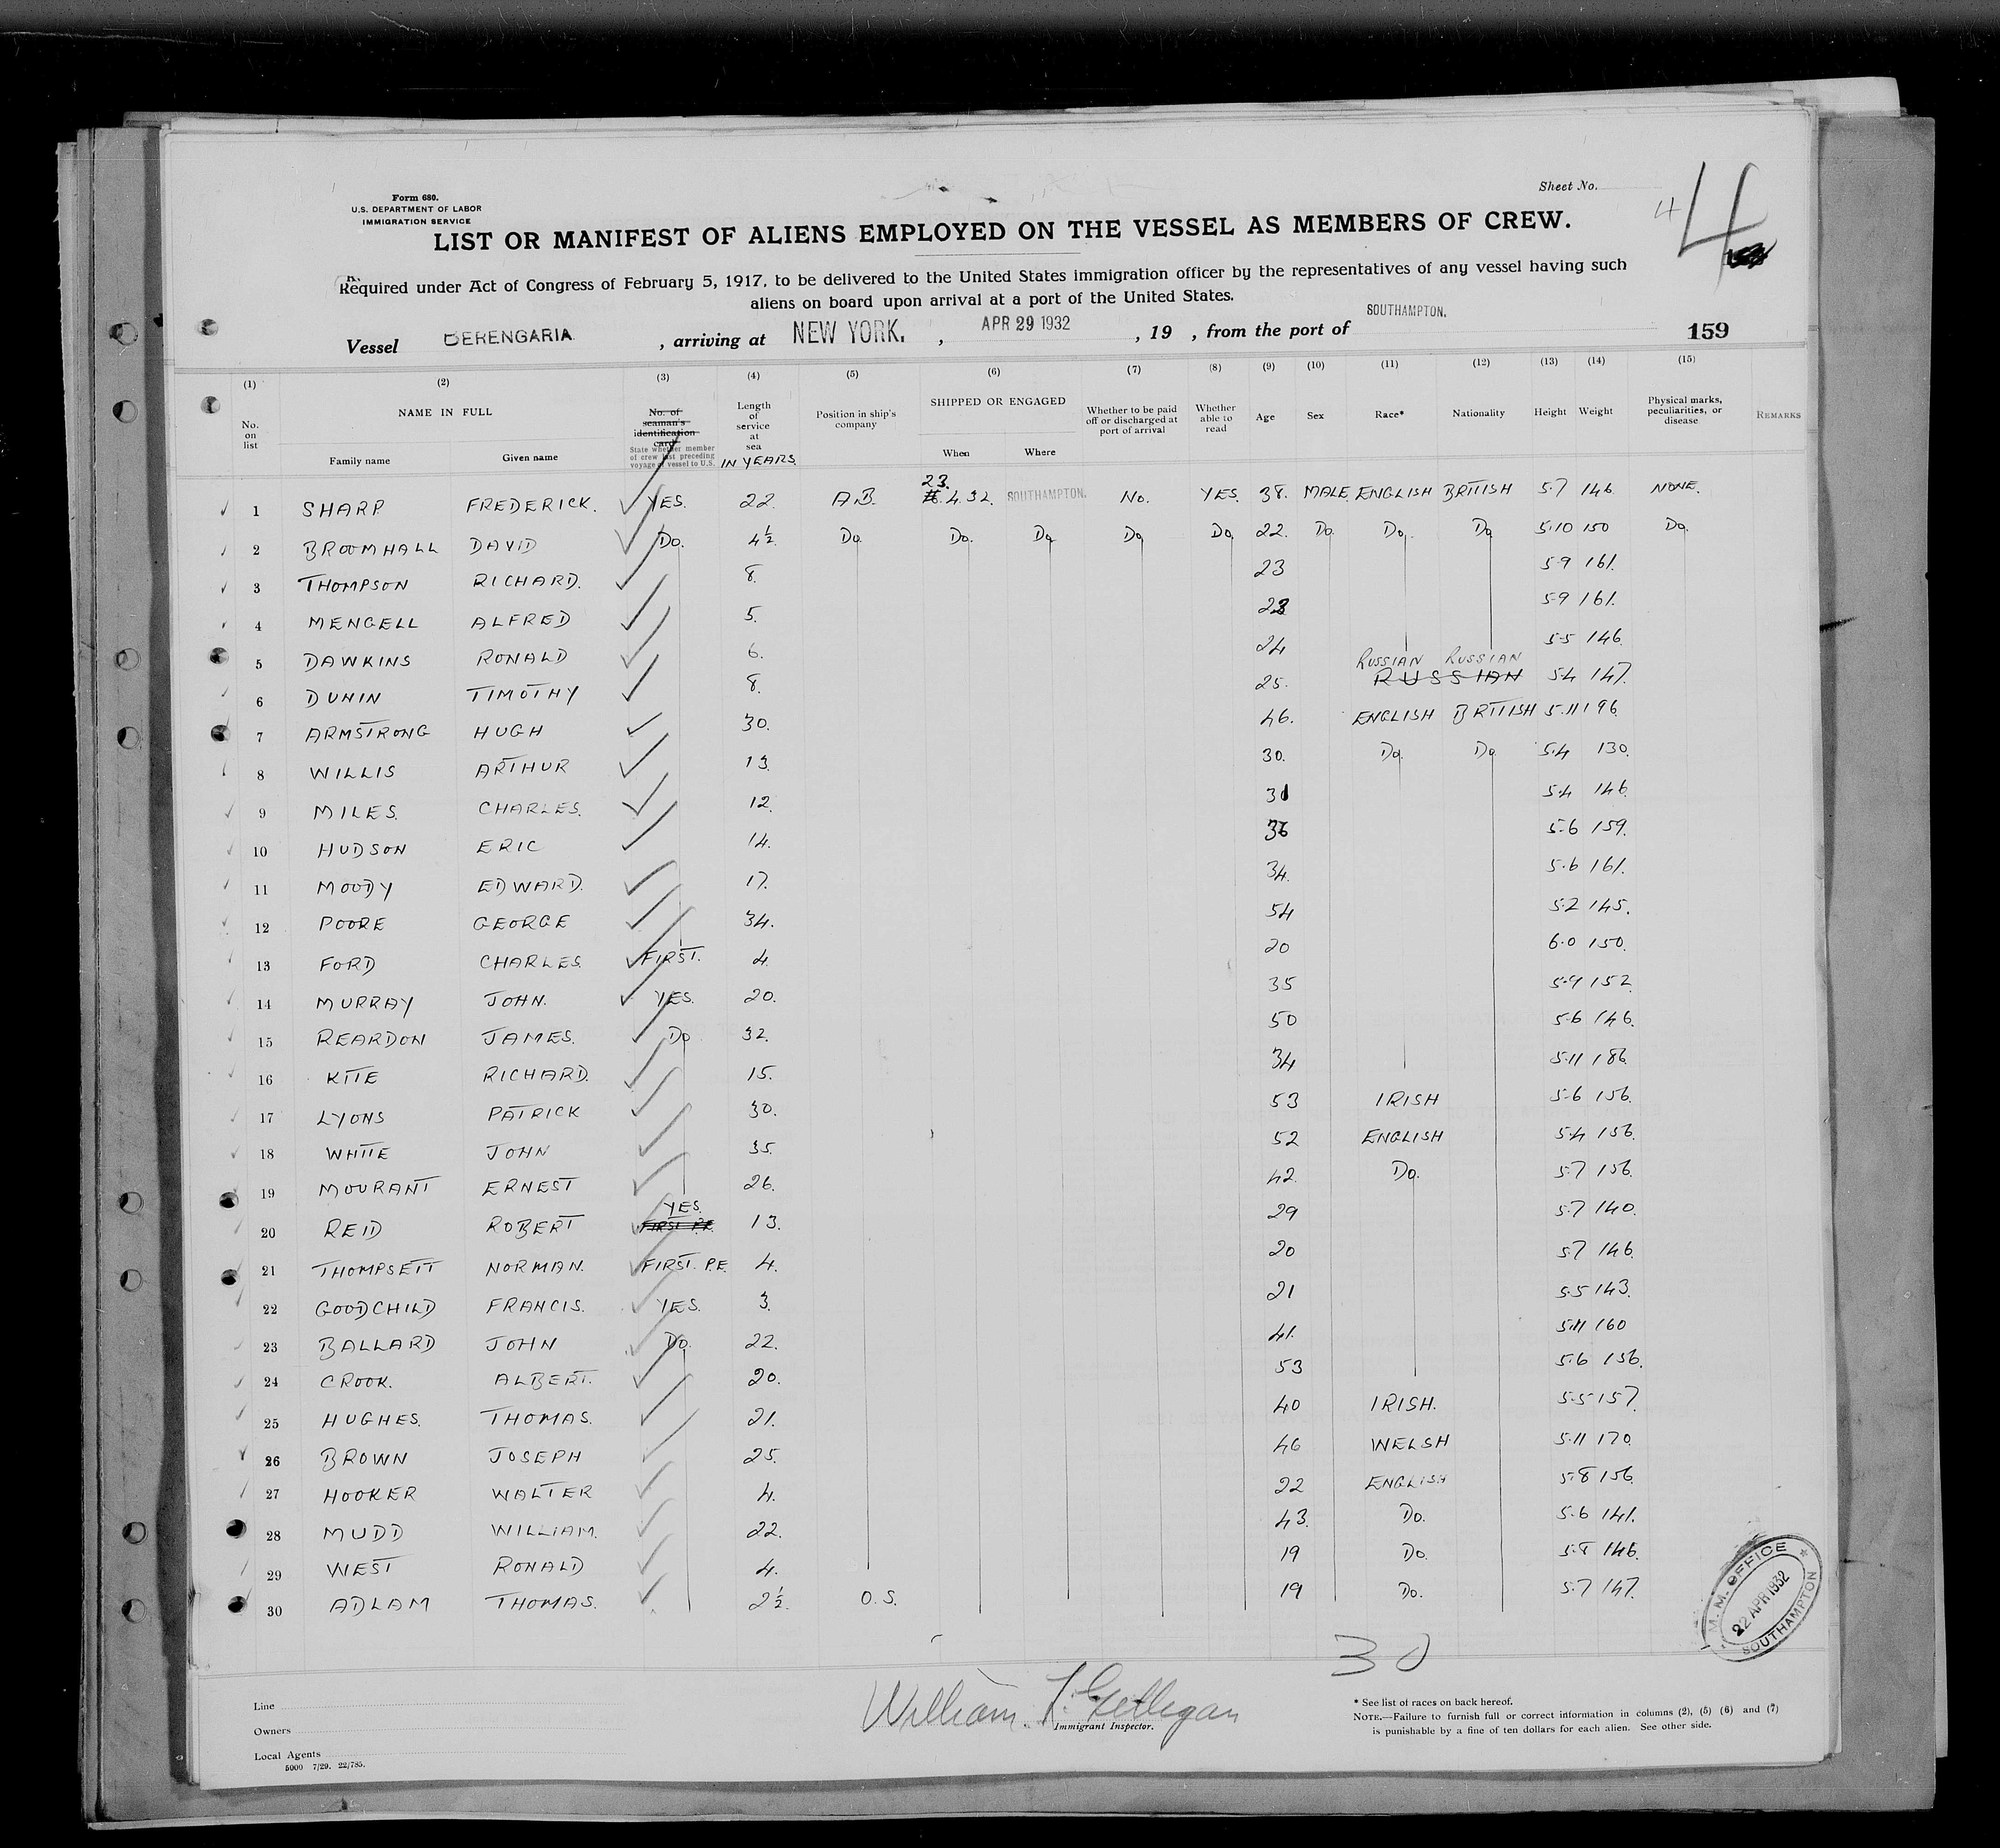 Form 680.
U.S. DEPARTMENT OF LABOR
IMMIGRATION SERVICE
Sheet No.
4 4
LIST OR MANIFEST OF ALIENS EMPLOYED ON THE VESSEL AS MEMBERS OF CREW.
Required under Act of Congress of February 5, 1917, to be delivered to the United States immigration officer by the representatives of any vessel having such
aliens on board upon arrival at a port of the United States.
Vessel BERENGARIA , arriving at NEW YORK. , APR 29 1932 , 19 , from the port of SOUTHAMPTON. 159
(1) (2) (3) (4) (5) (6) (7) (8) (9) (10) (11) (12) (13) (14) (15)
No. on list NAME IN FULL Family name Given name No. of seaman's identification card State whether member of crew last preceding voyage of vessel to U.S. Length of service at sea IN YEARS. Position in ship's company SHIPPED OR ENGAGED When Where Whether to be paid off or discharged at port of arrival Whether able to read Age Sex Race* Nationality Height Weight Physical marks, peculiarities, or disease REMARKS
1 SHARP FREDERICK. YES. 22. A.B. 23. 4.32. SOUTHAMPTON. No. YES. 38. MALE ENGLISH BRITISH 5.7 146 NONE.
2 BROOMHALL DAVID Do. 4½ Do Do. Do Do Do 22. Do. Do. Do 5.10 150 Do.
3 THOMPSON RICHARD. 8. 23 5.9 161.
4 MENGELL ALFRED 5. 23 5.9 161.
5 DAWKINS RONALD 6. 24 5.5 146.
6 DUNIN TIMOTHY 8. 25. RUSSIAN RUSSIAN RUSSIAN 5.4 147.
7 ARMSTRONG HUGH 30. 46. ENGLISH BRITISH 5.11 196.
8 WILLIS ARTHUR 13. 30. Do. Do 5.4 130.
9 MILES. CHARLES. 12. 31 5.4 146.
10 HUDSON ERIC 14. 36 5.6 159.
11 MOODY EDWARD. 17. 34. 5.6 161.
12 POORE GEORGE 34. 54 5.2 145.
13 FORD CHARLES. FIRST. 4. 20 6.0 150.
14 MURRAY JOHN. YES. 20. 35 5.9 152.
15 REARDON JAMES. Do 32. 50 5.6 146.
16 KITE RICHARD. 15. 34 5.11 186.
17 LYONS PATRICK 30. 53 IRISH 5.6 156.
18 WHITE JOHN 35. 52 ENGLISH 5.4 156.
19 MOURANT ERNEST 26. 42. Do. 5.7 156.
20 REID ROBERT YES. FIRST P.E. 13. 29 5.7 140.
21 THOMPSETT NORMAN. FIRST. P.E. 4. 20 5.7 146.
22 GOODCHILD FRANCIS. YES. 3. 21 5.5 143.
23 BALLARD JOHN Do. 22. 41. 5.11 160
24 CROOK. ALBERT. 20. 53 5.6 156.
25 HUGHES. THOMAS. 21. 40 IRISH. 5.5 157.
26 BROWN JOSEPH 25. 46 WELSH 5.11 170.
27 HOOKER WALTER 4. 22 ENGLISH 5.8 156.
28 MUDD WILLIAM. 22. 43. Do. 5.6 141.
29 WEST RONALD 4. 19 Do. 5.8 146.
30 ADLAM THOMAS. 2½. O.S. 19 Do. 5.7 147.
M.M. OFFICE 22 APR 1932 SOUTHAMPTON
30
Line
Owners
Local Agents
5000 7/29. 22/785.
William
Immigrant Inspector.
* See list of races on back hereof.
NOTE.—Failure to furnish full or correct information in columns (2), (5) (6) and (7)
is punishable by a fine of ten dollars for each alien. See other side.